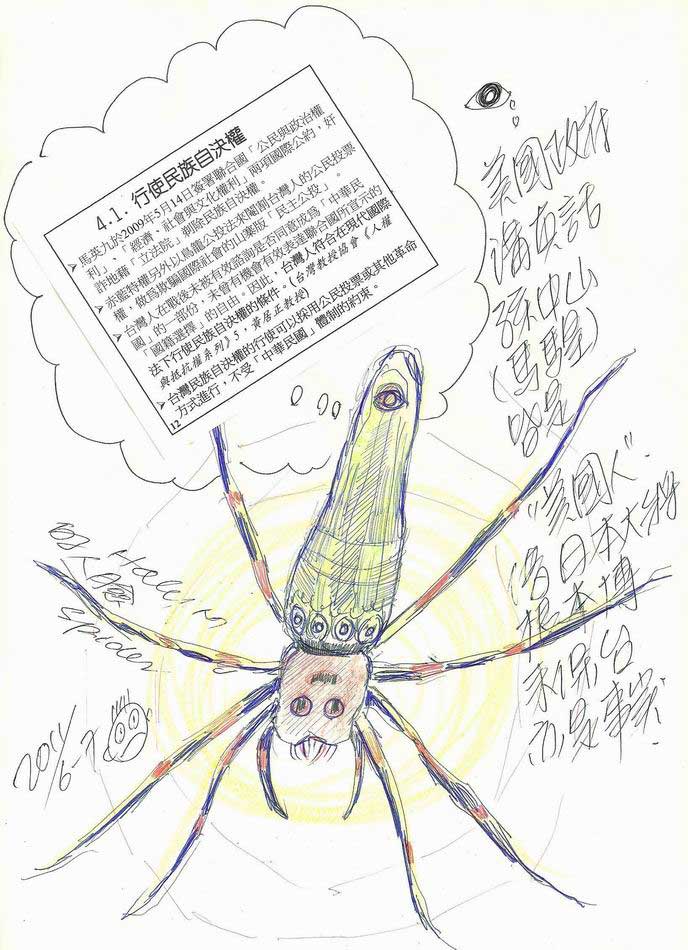 4.1. 行使民族自決權
➤ 馬英九於2009年5月14日簽署聯合國「公民與政治權
利」、「經濟、社會與文化權利」兩項國際公約,奸
詐地藉「立法院」剔除民族自決權。
➤ 赤藍特權另外以鳥籠公投法來閹割台灣人的公民投票
權,做為欺騙國際社會的山寨版「民主公投」。
➤ 台灣人在戰後未被有效諮詢是否同意成為「中華民
國」的一部份,未曾有機會有效表達聯合國所宣示的
「國籍選擇」的自由。因此,台灣人符合在現代國際
法下行使民族自決權的條件。(台灣教授協會《人權
與抵抗權系列》5,黃居正教授)
➤ 台灣民族自決權的行使可以採用公民投票或其他革命
方式進行,不受「中華民國」體制的約束。
12
美國政府
講真話
孫中山
皆是
"美國人".
日本大將
根本博
來保台
亦是事實.
人面
spider
2011/6-7